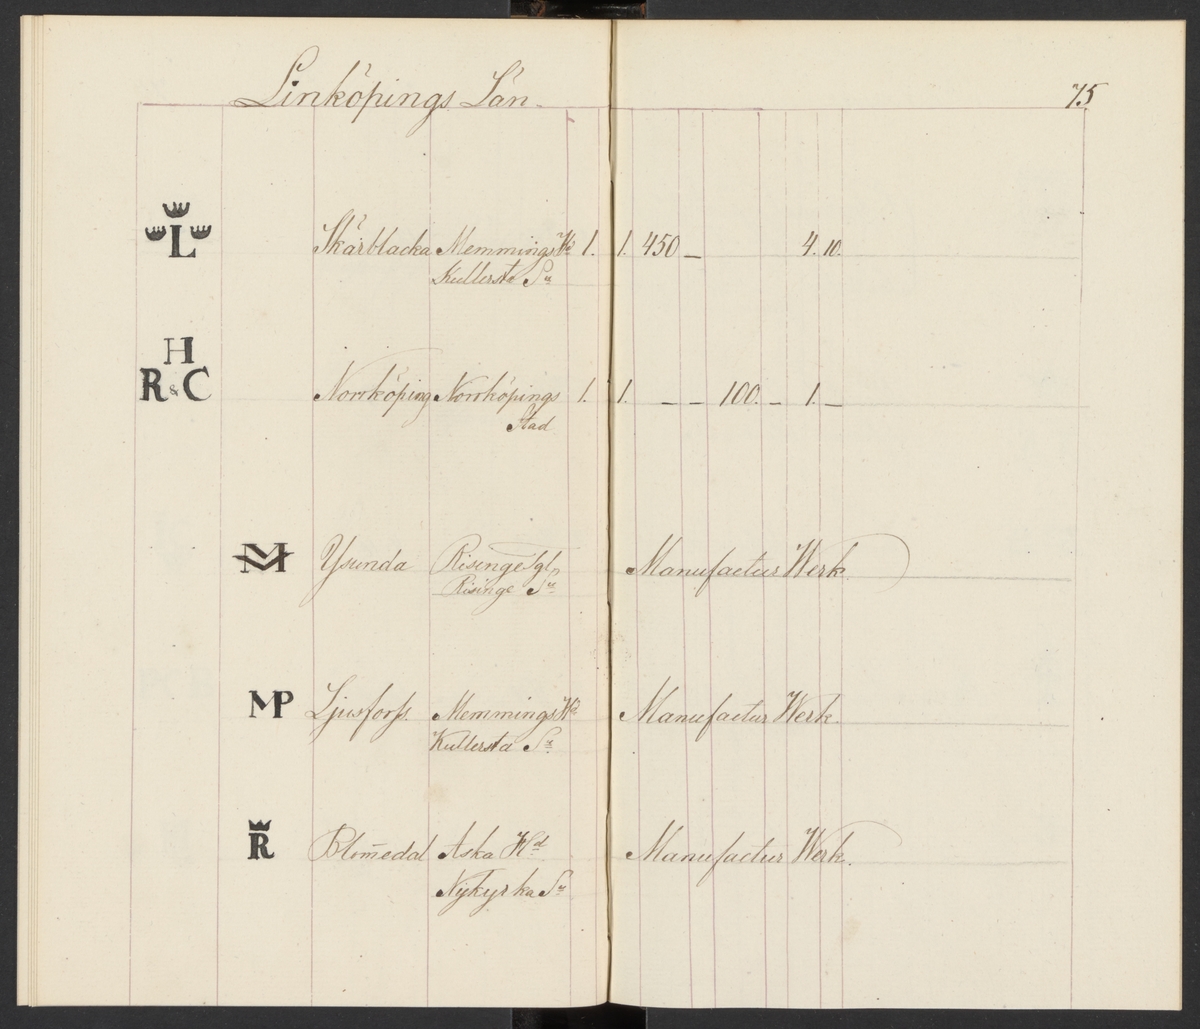 Linköpings Län.
75
L
Skärblacka Memmings Hd 1. 1. 450 – 4. 10.
Kullersta Sn
H
R & C
Norrköping Norrköpings 1. 1. – – 100. – 1. –
Stad
M Ysunda Risinge Manufactur Werk
Risinge Sn
MP Ljusforss Memmings Hd Manufactur Werk.
Kullersta Sn
R Blomedal Aska Hd Manufactur Werk.
Nykyrka Sn